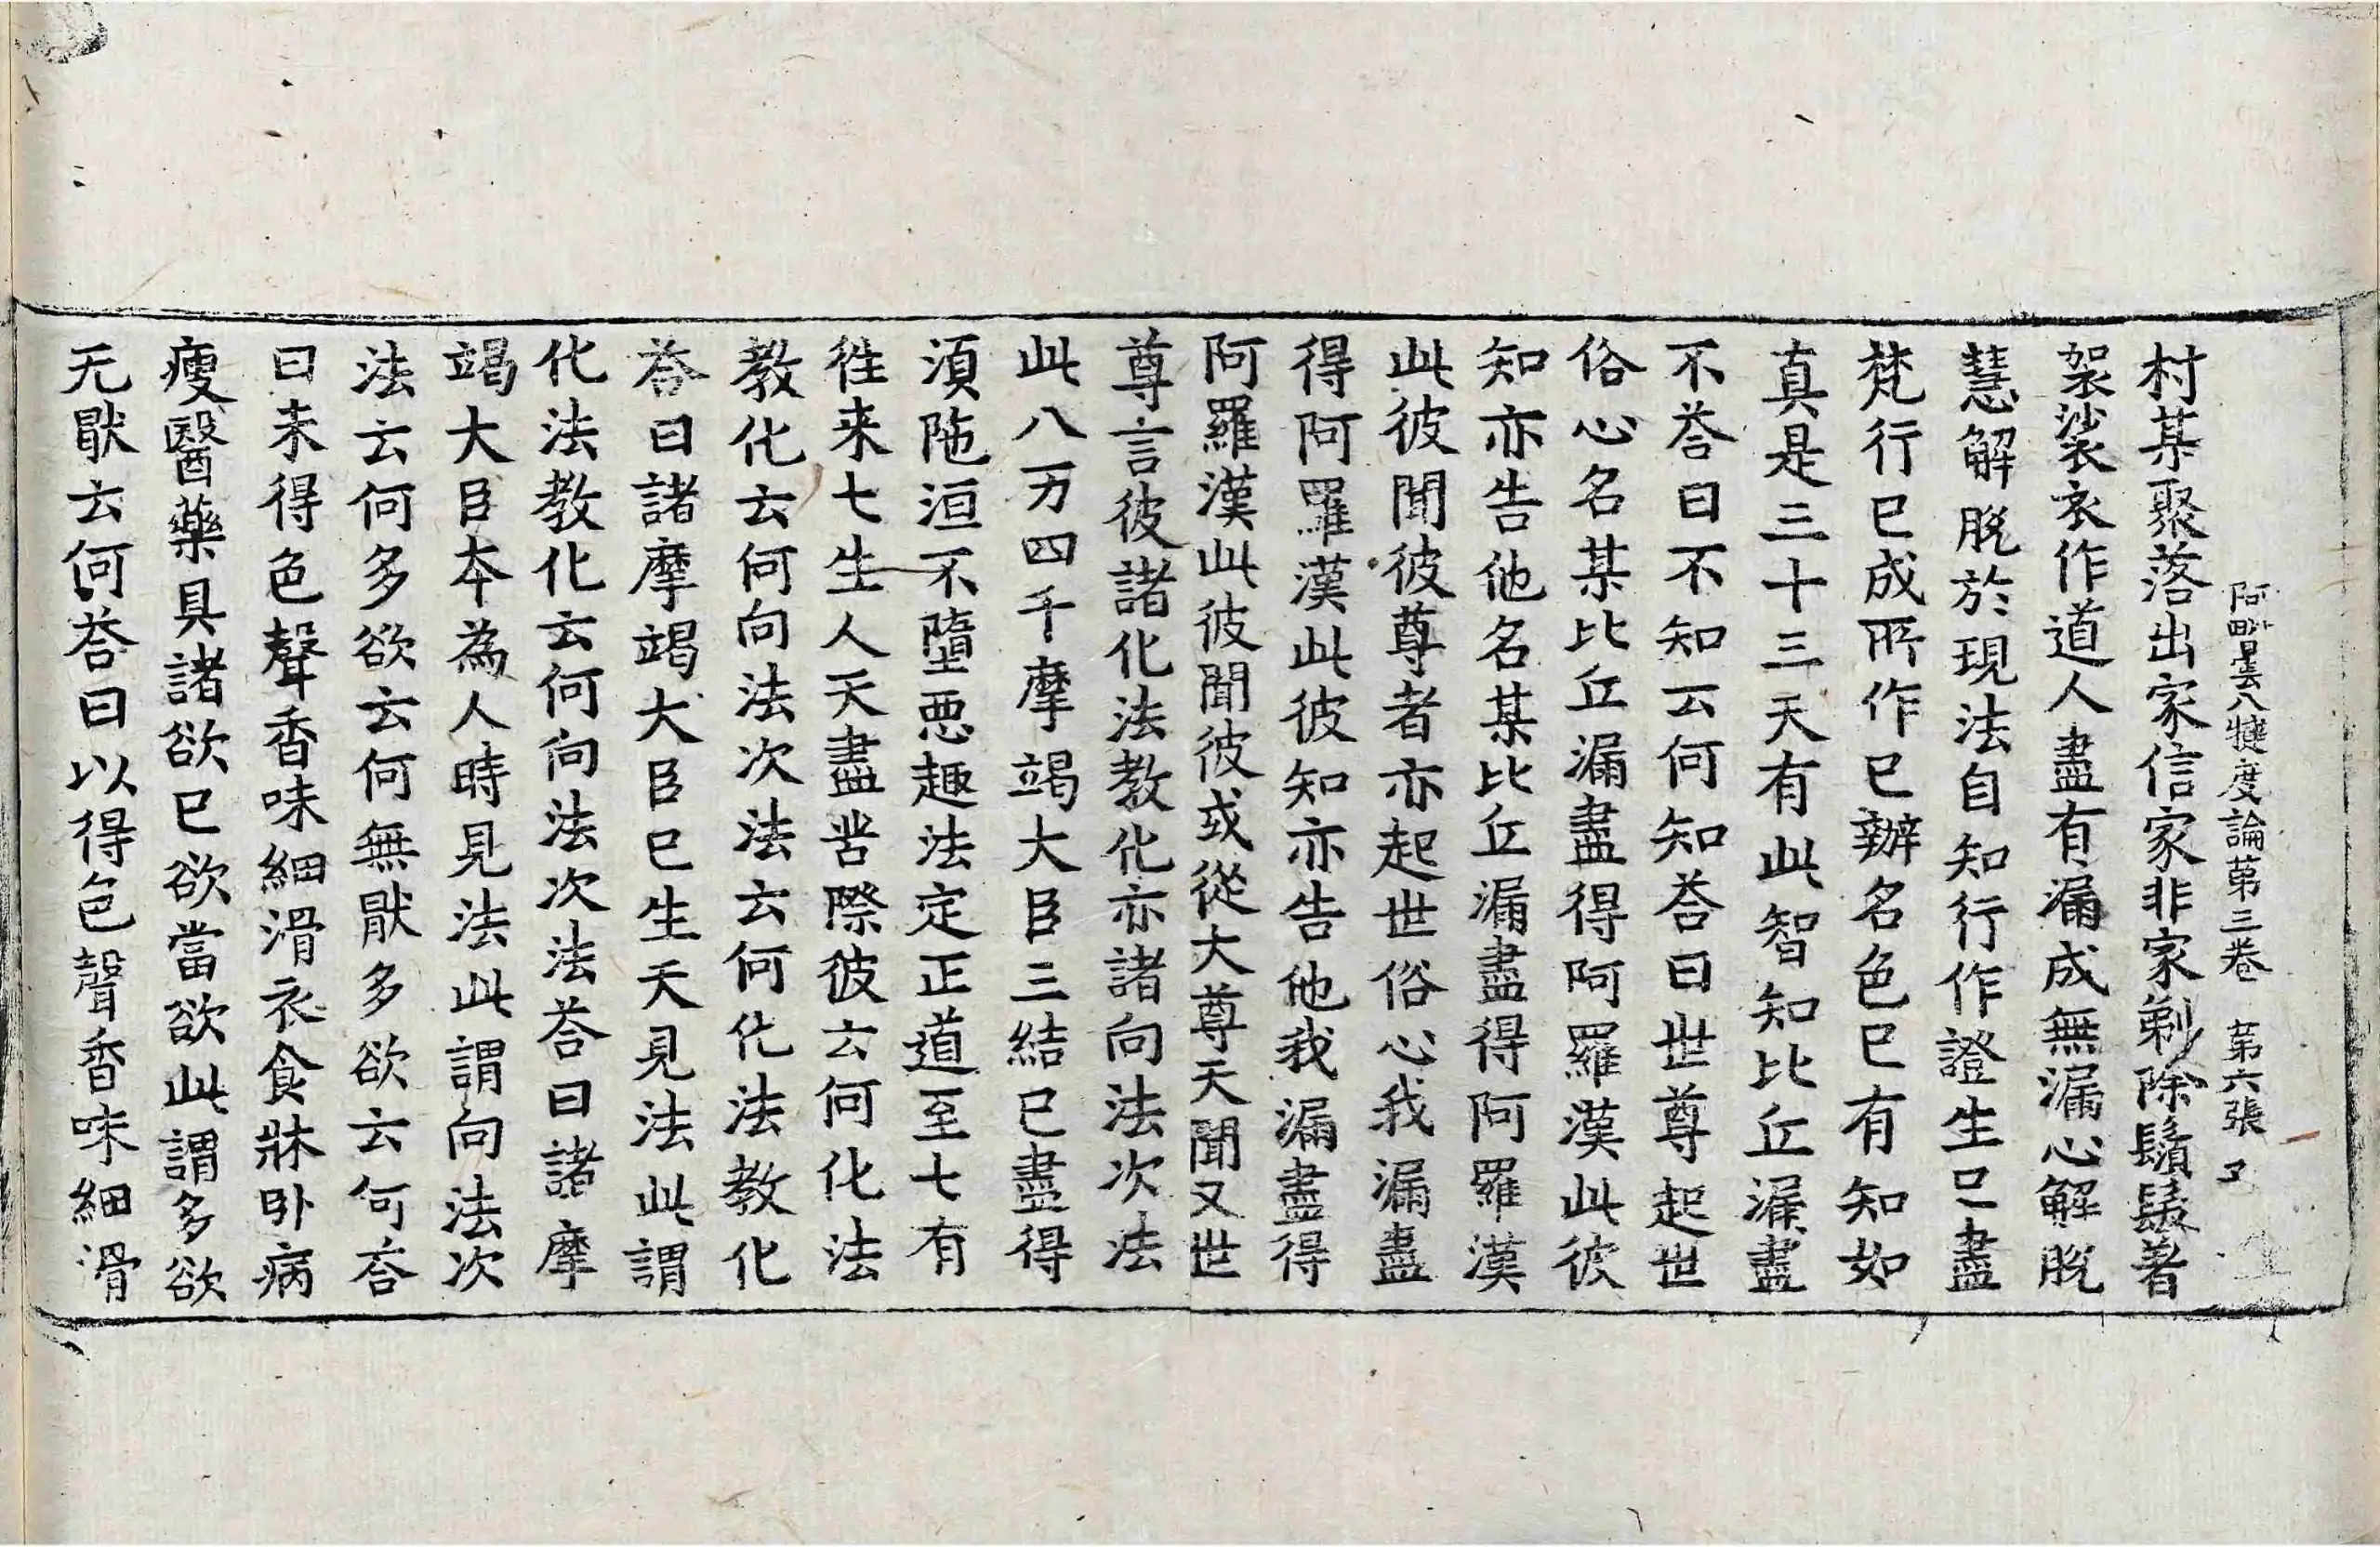 阿毗曇八犍度論第三卷 第六張 又
村某聚落出家信家非家剃除鬚髮著
袈裟衣作道人盡有漏成無漏心解脫
慧解脫於現法自知行作證生已盡
梵行已成所作已辦名色已有知如
真是三十三天有此智知比丘漏盡
不荅曰不知云何知荅曰世尊起世
俗心名某比丘漏盡得阿羅漢此彼
知亦告他名某比丘漏盡得阿羅漢
此彼聞彼尊者亦起世俗心我漏盡
得阿羅漢此彼知亦告他我漏盡得
阿羅漢此彼聞彼或從大尊天聞又世
尊言彼諸化法教化亦諸向法次法
此八万四千摩竭大臣三結已盡得
湏陁洹不墮惡趣法定正道至七有
徃来七生人天盡苦際彼云何化法
教化云何向法次法云何化法教化
荅曰諸摩竭大臣已生天見法此謂
化法教化云何向法次法荅曰諸摩
竭大臣本為人時見法此謂向法次
法云何多欲云何無猒多欲云何荅
曰未得色聲香味細滑衣食牀卧病
瘦醫藥具諸欲已欲當欲此謂多欲
无猒云何荅曰以得色聲香味細滑